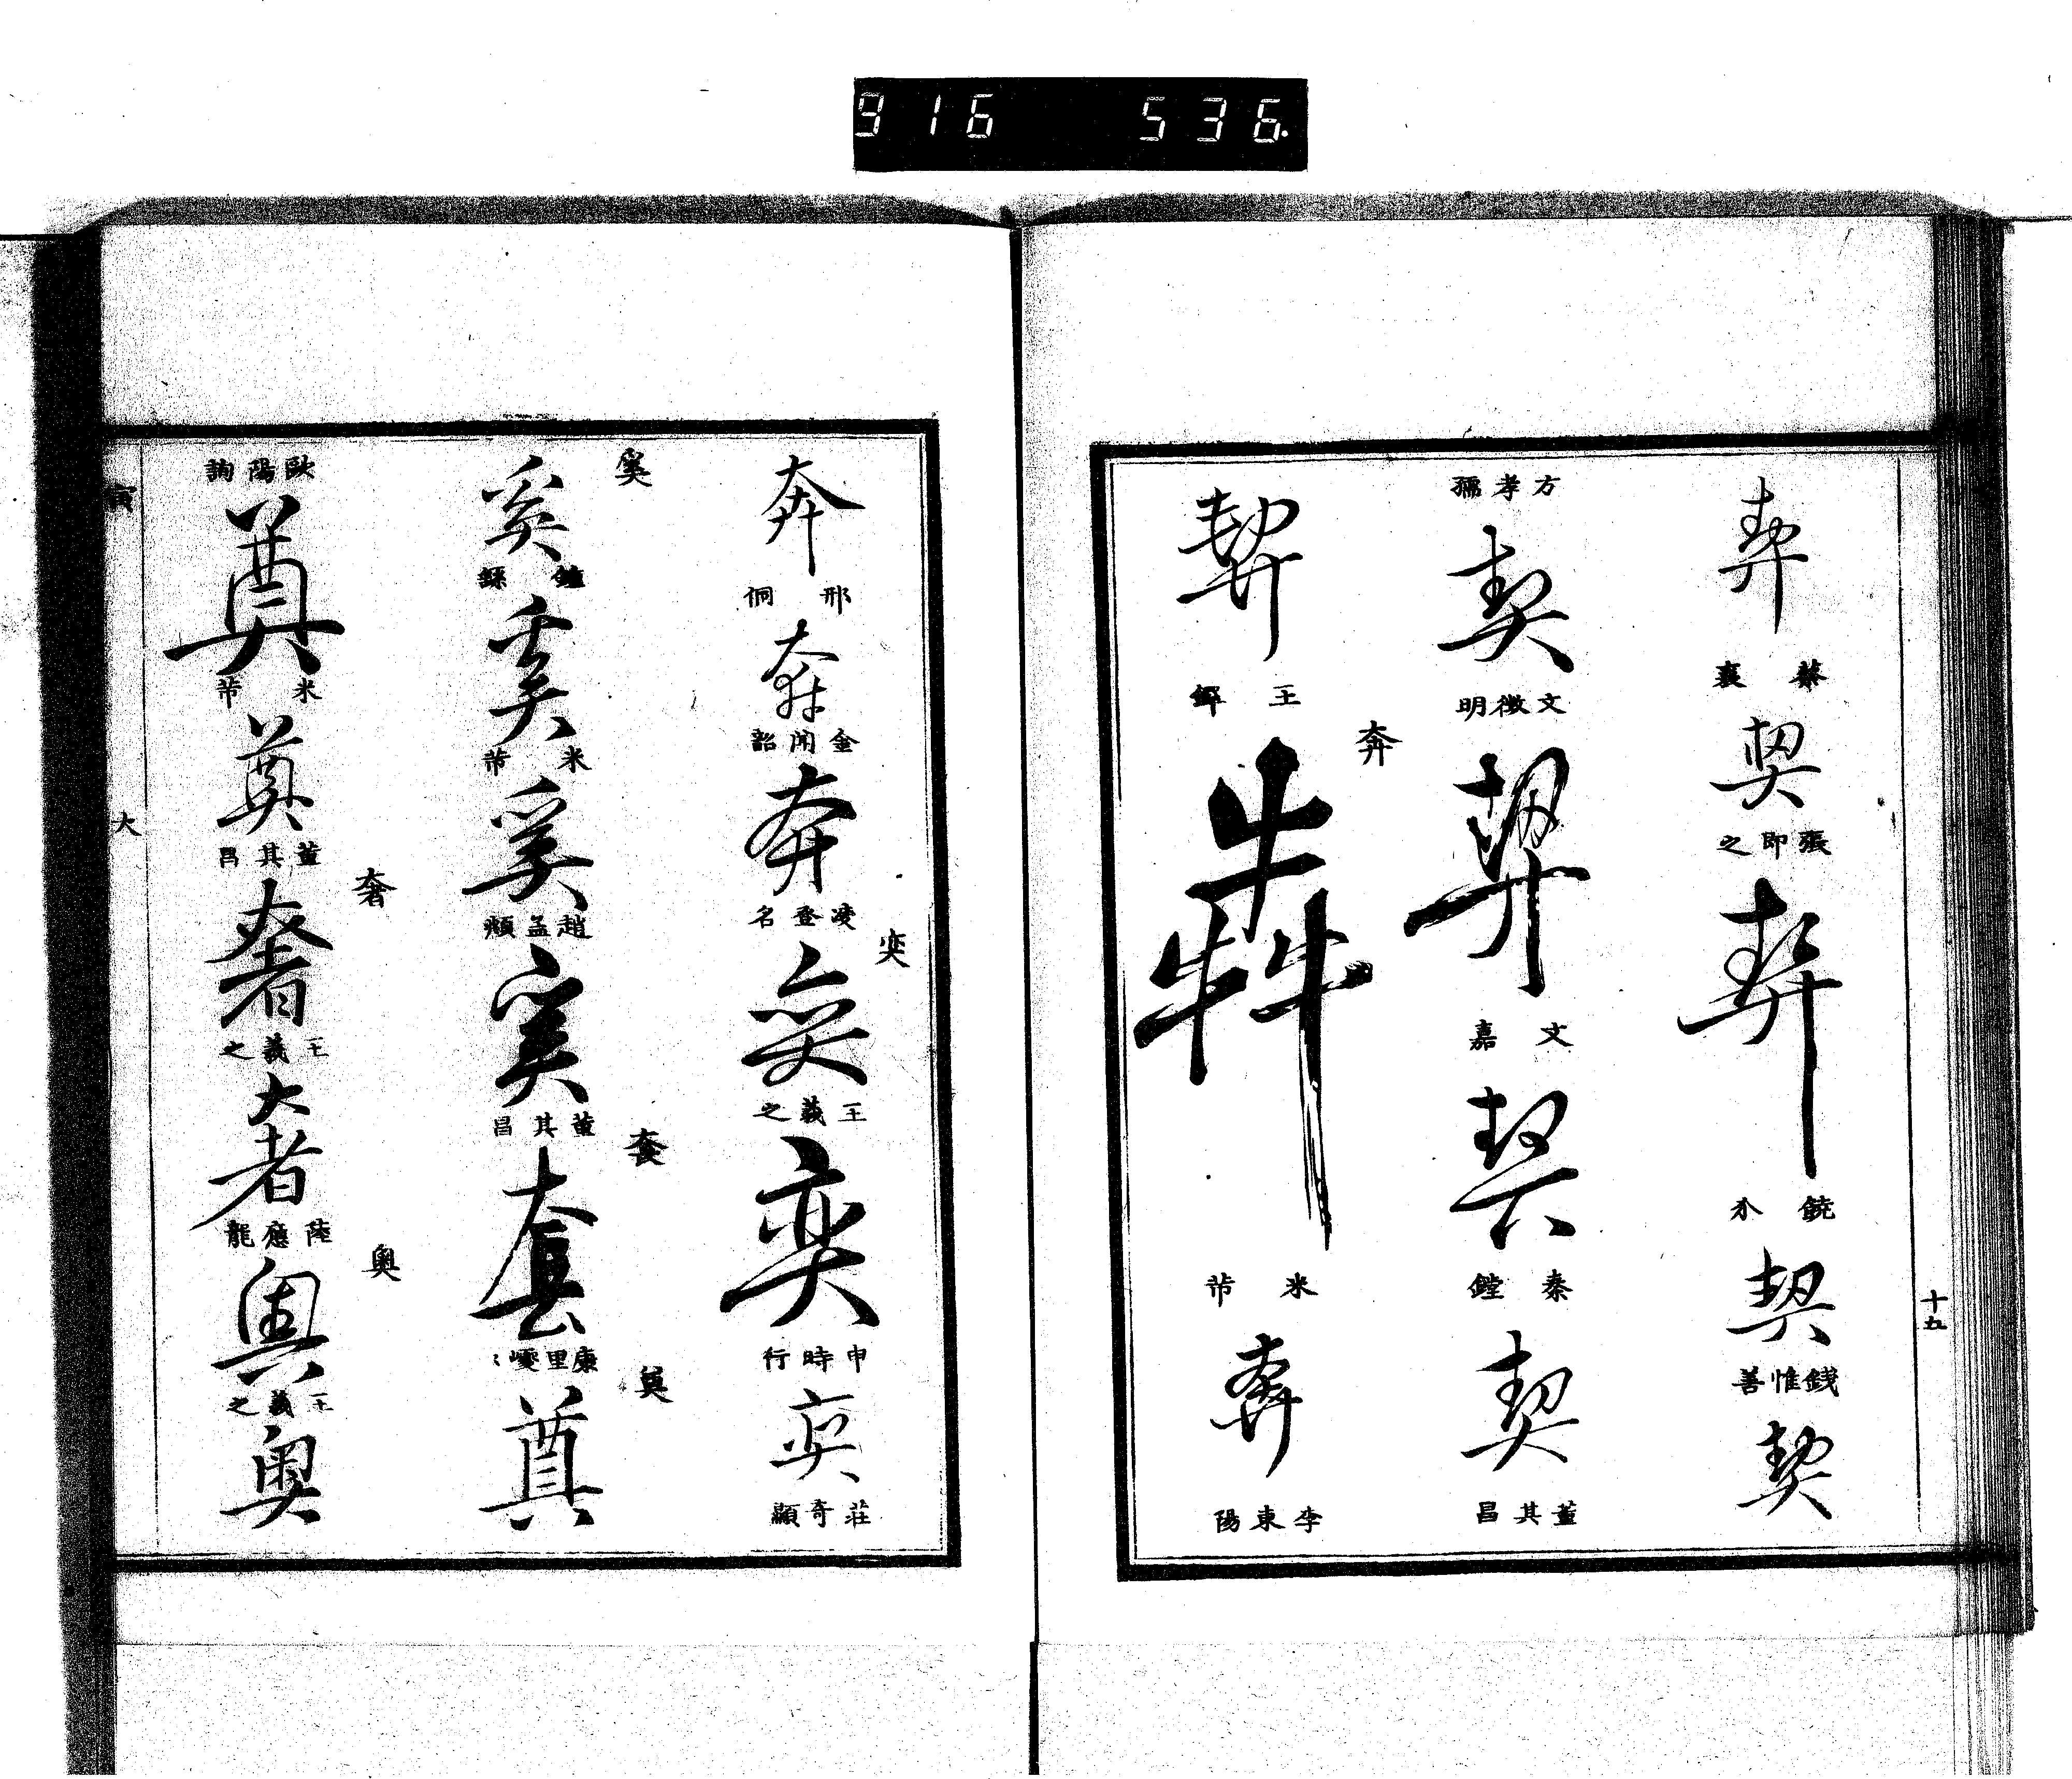 916 536
十五
契
蔡襄
契
張即之
契
契
錢惟善
契
方孝孺
契
文徵明
契
文嘉
契
秦鏜
契
董其昌
契
王鐸
奔
犇
米芾
奔
李東陽
奔
邢侗
奔
金聞韶
奔
凌登名
奕
奕
王羲之
奕
申時行
奕
莊奇顯
奚
奚
鍾繇
奚
米芾
奚
趙孟頫
奚
董其昌
套
套
康里巙巙
奠
奠
歐陽詢
奠
米芾
奠
董其昌
奢
奢
王羲之
奢
陸應龍
奧
奧
王羲之
奧
寅
大